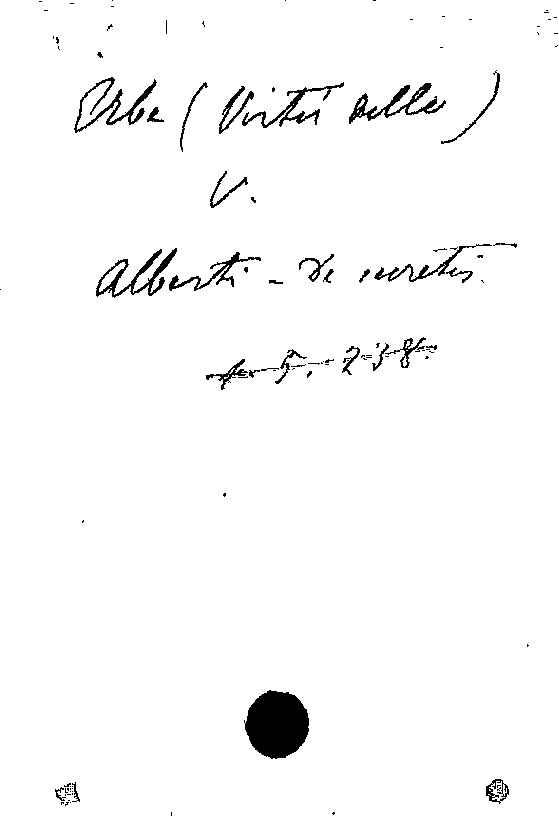 Erbe (Virtù delle)
V.
Alberti - De secretis.
5. 238.